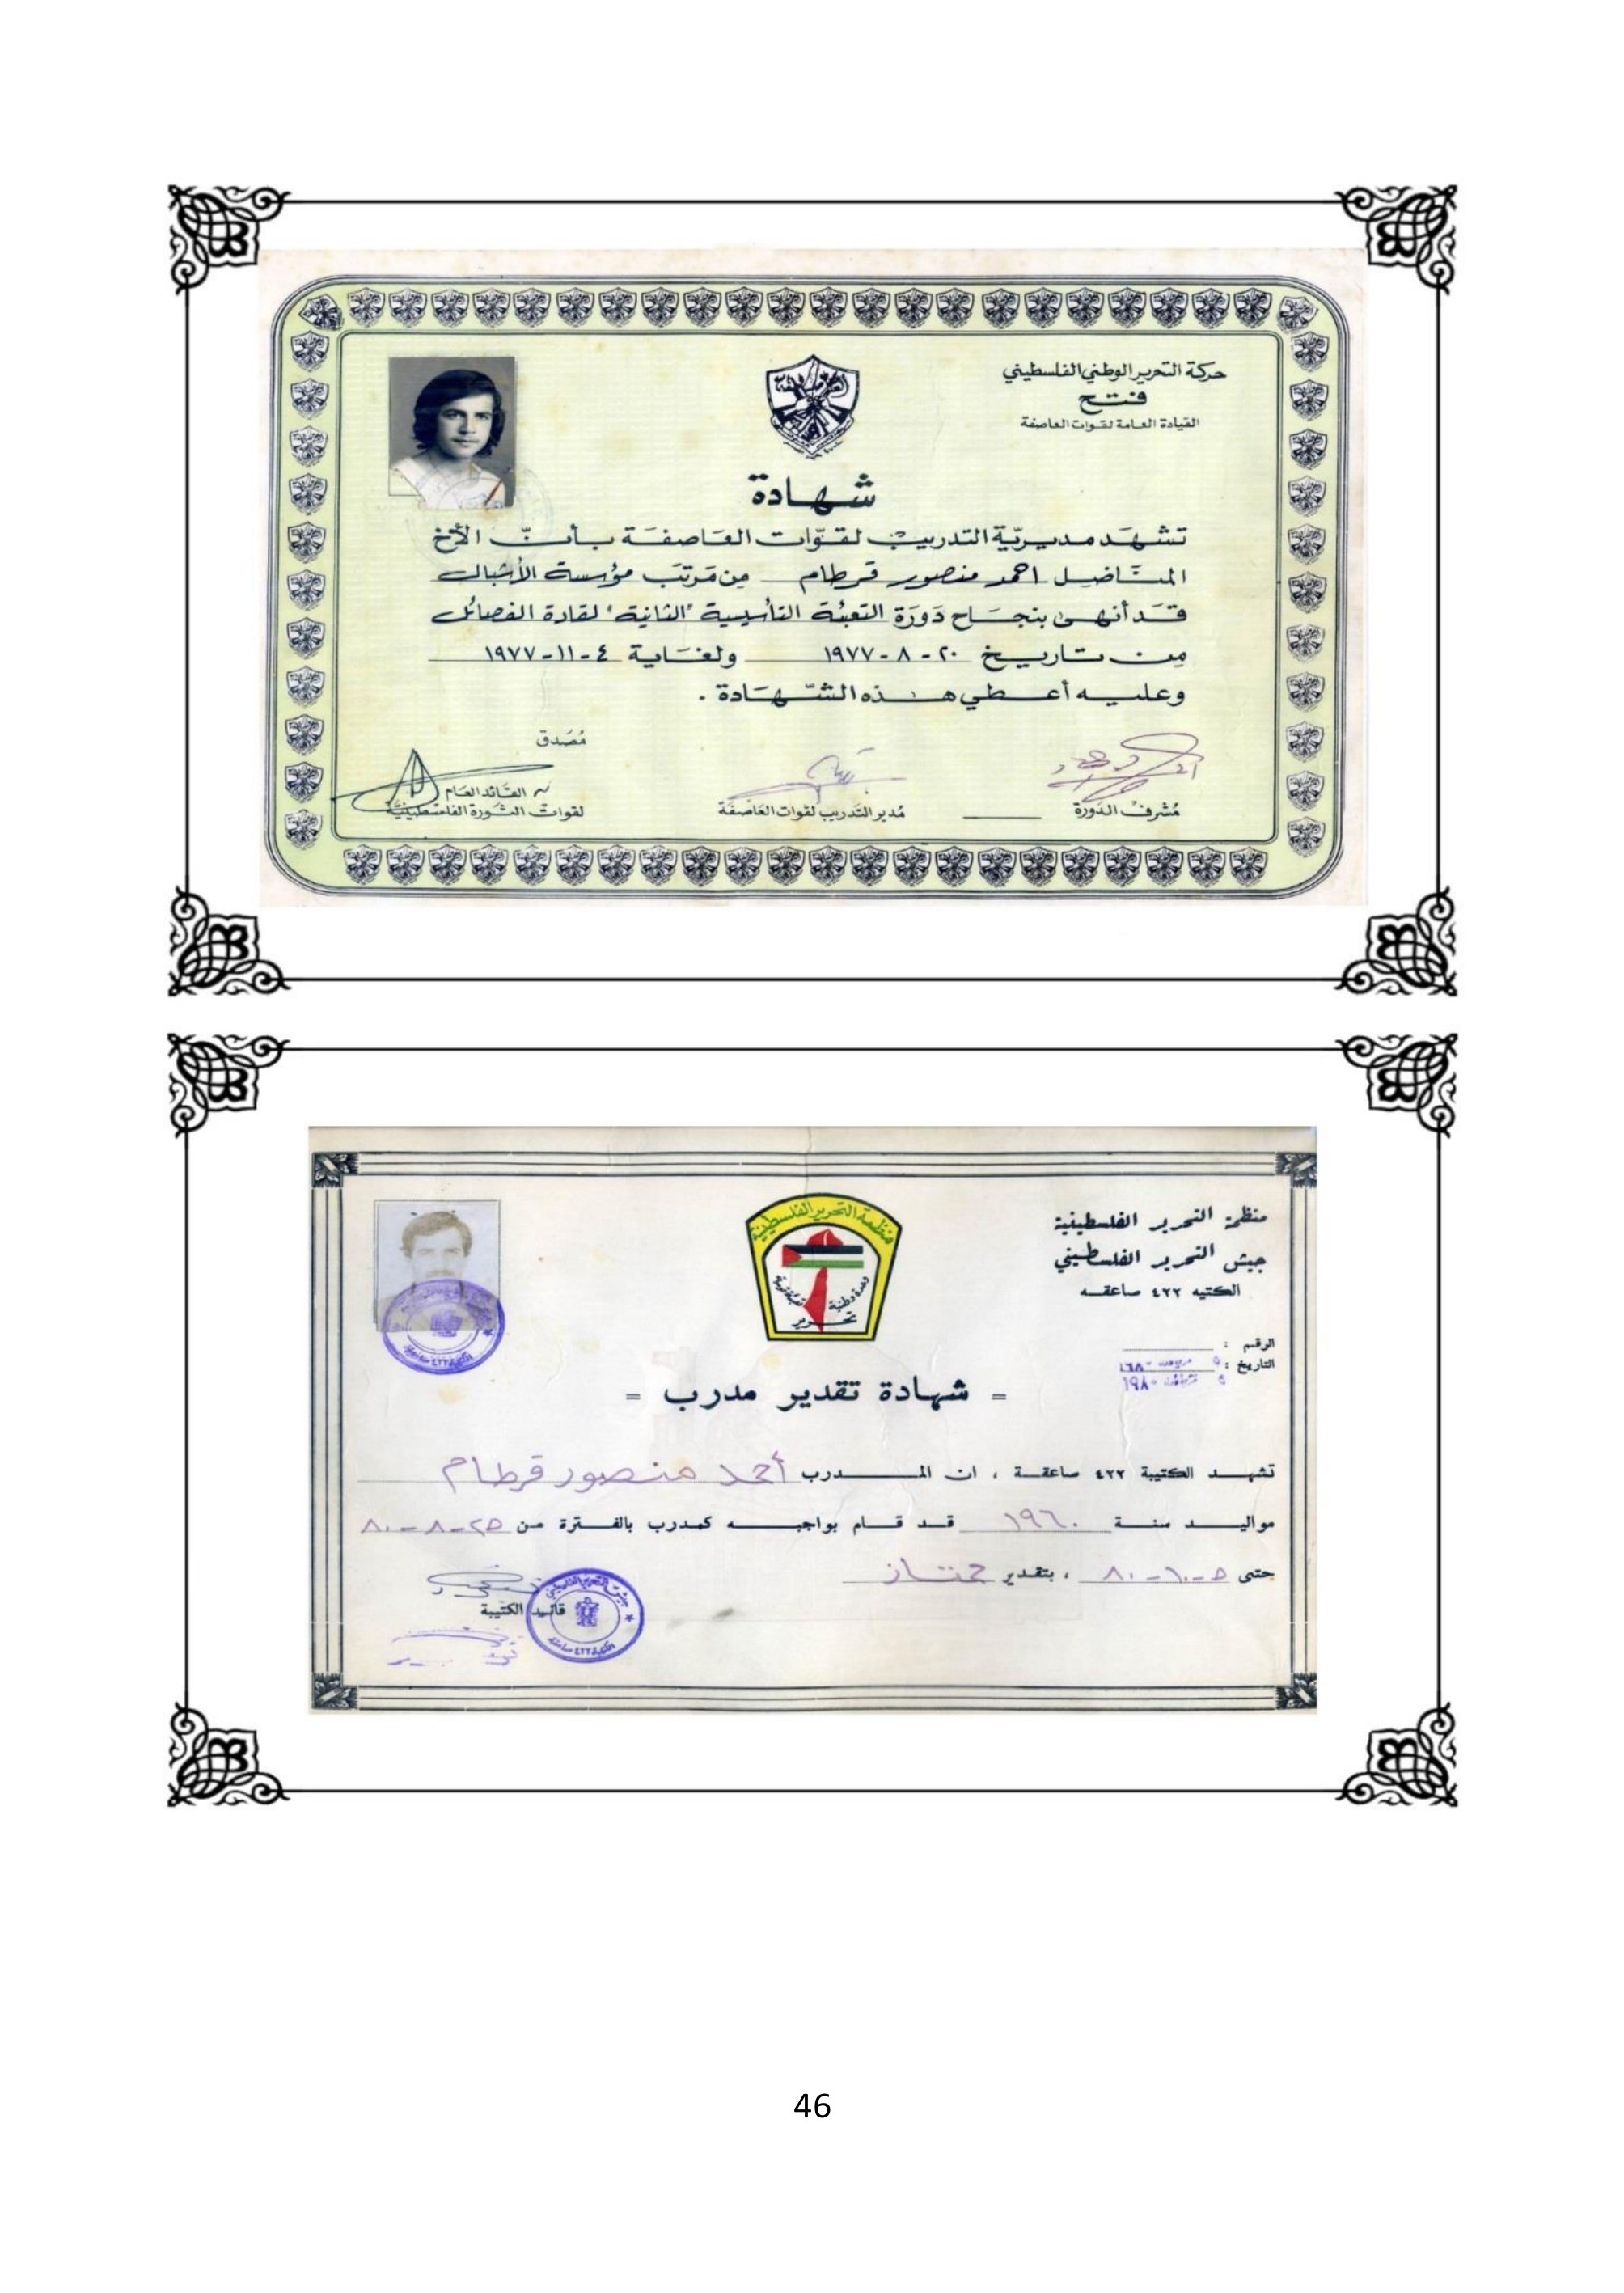 حركة التحرير الوطني الفلسطيني
فتح
القيادة العامة لقوات العاصفة
العاصفة
شهادة
تشهد مديريّة التدريب لقوّات العاصفة بأنّ الأخ
المناضل احمد منصور قرطام من مَرتَب مؤسسة الأشبال
قد أنهى بنجاح دَورَة التعبئة التأسيسية "الثانية" لقادة الفصائل
من تاريخ ٢٠-٨-١٩٧٧ ولغاية ٤-١١-١٩٧٧
وعليه أعطي هذه الشّهادة .
مُصَدق
مُشرف الدَورة
مُدير التَدريب لقوات العَاصفَة
القَائد العَام
لقوات الثَورة الفلسطينيَّة
منظمة التحرير الفلسطينية
جيش التحرير الفلسطيني
الكتيبه ٤٢٢ صاعقه
منظمة التحرير الفلسطينية
وحدة وطنية
تعبئة قومية
تحرير
الرقم :
التاريخ : ٥
٥ ١٩٨٠
= شهادة تقدير مدرب =
تشهد الكتيبة ٤٢٢ صاعقة ، ان المدرب أحمد منصور قرطام
مواليد سنة ١٩٦٠ قد قام بواجبه كمدرب بالفترة من ٢٥-٨-٨٠
حتى ٥-١٠-٨٠ ، بتقدير ممتاز
قائد الكتيبة
جيش التحرير الفلسطيني
الكتيبة ٤٢٢ صاعقة
46